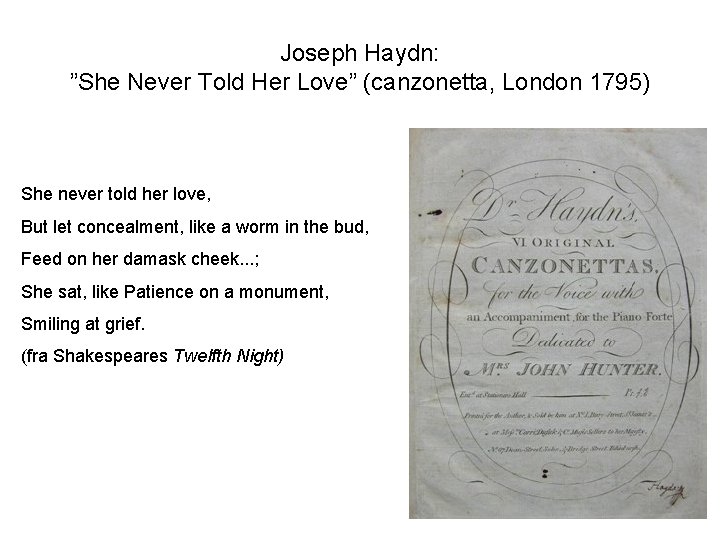 Joseph Haydn:
”She Never Told Her Love” (canzonetta, London 1795)
She never told her love,
But let concealment, like a worm in the bud,
Feed on her damask cheek...;
She sat, like Patience on a monument,
Smiling at grief.
(fra Shakespeares Twelfth Night)
Dr. Haydn's,
VI ORIGINAL
CANZONETTAS,
for the Voice with
an Accompaniment, for the Piano Forte
Dedicated to
MRS JOHN HUNTER.
Ent.d at Stationers Hall
Printed for the Author, & Sold by him at No. 1 Bury Street, St. James's
at Messrs. Corri, Dussek & Co. Music Sellers to her Majesty,
No. 67 Dean Street, Soho, & Bridge Street, Edinburgh.
Haydn